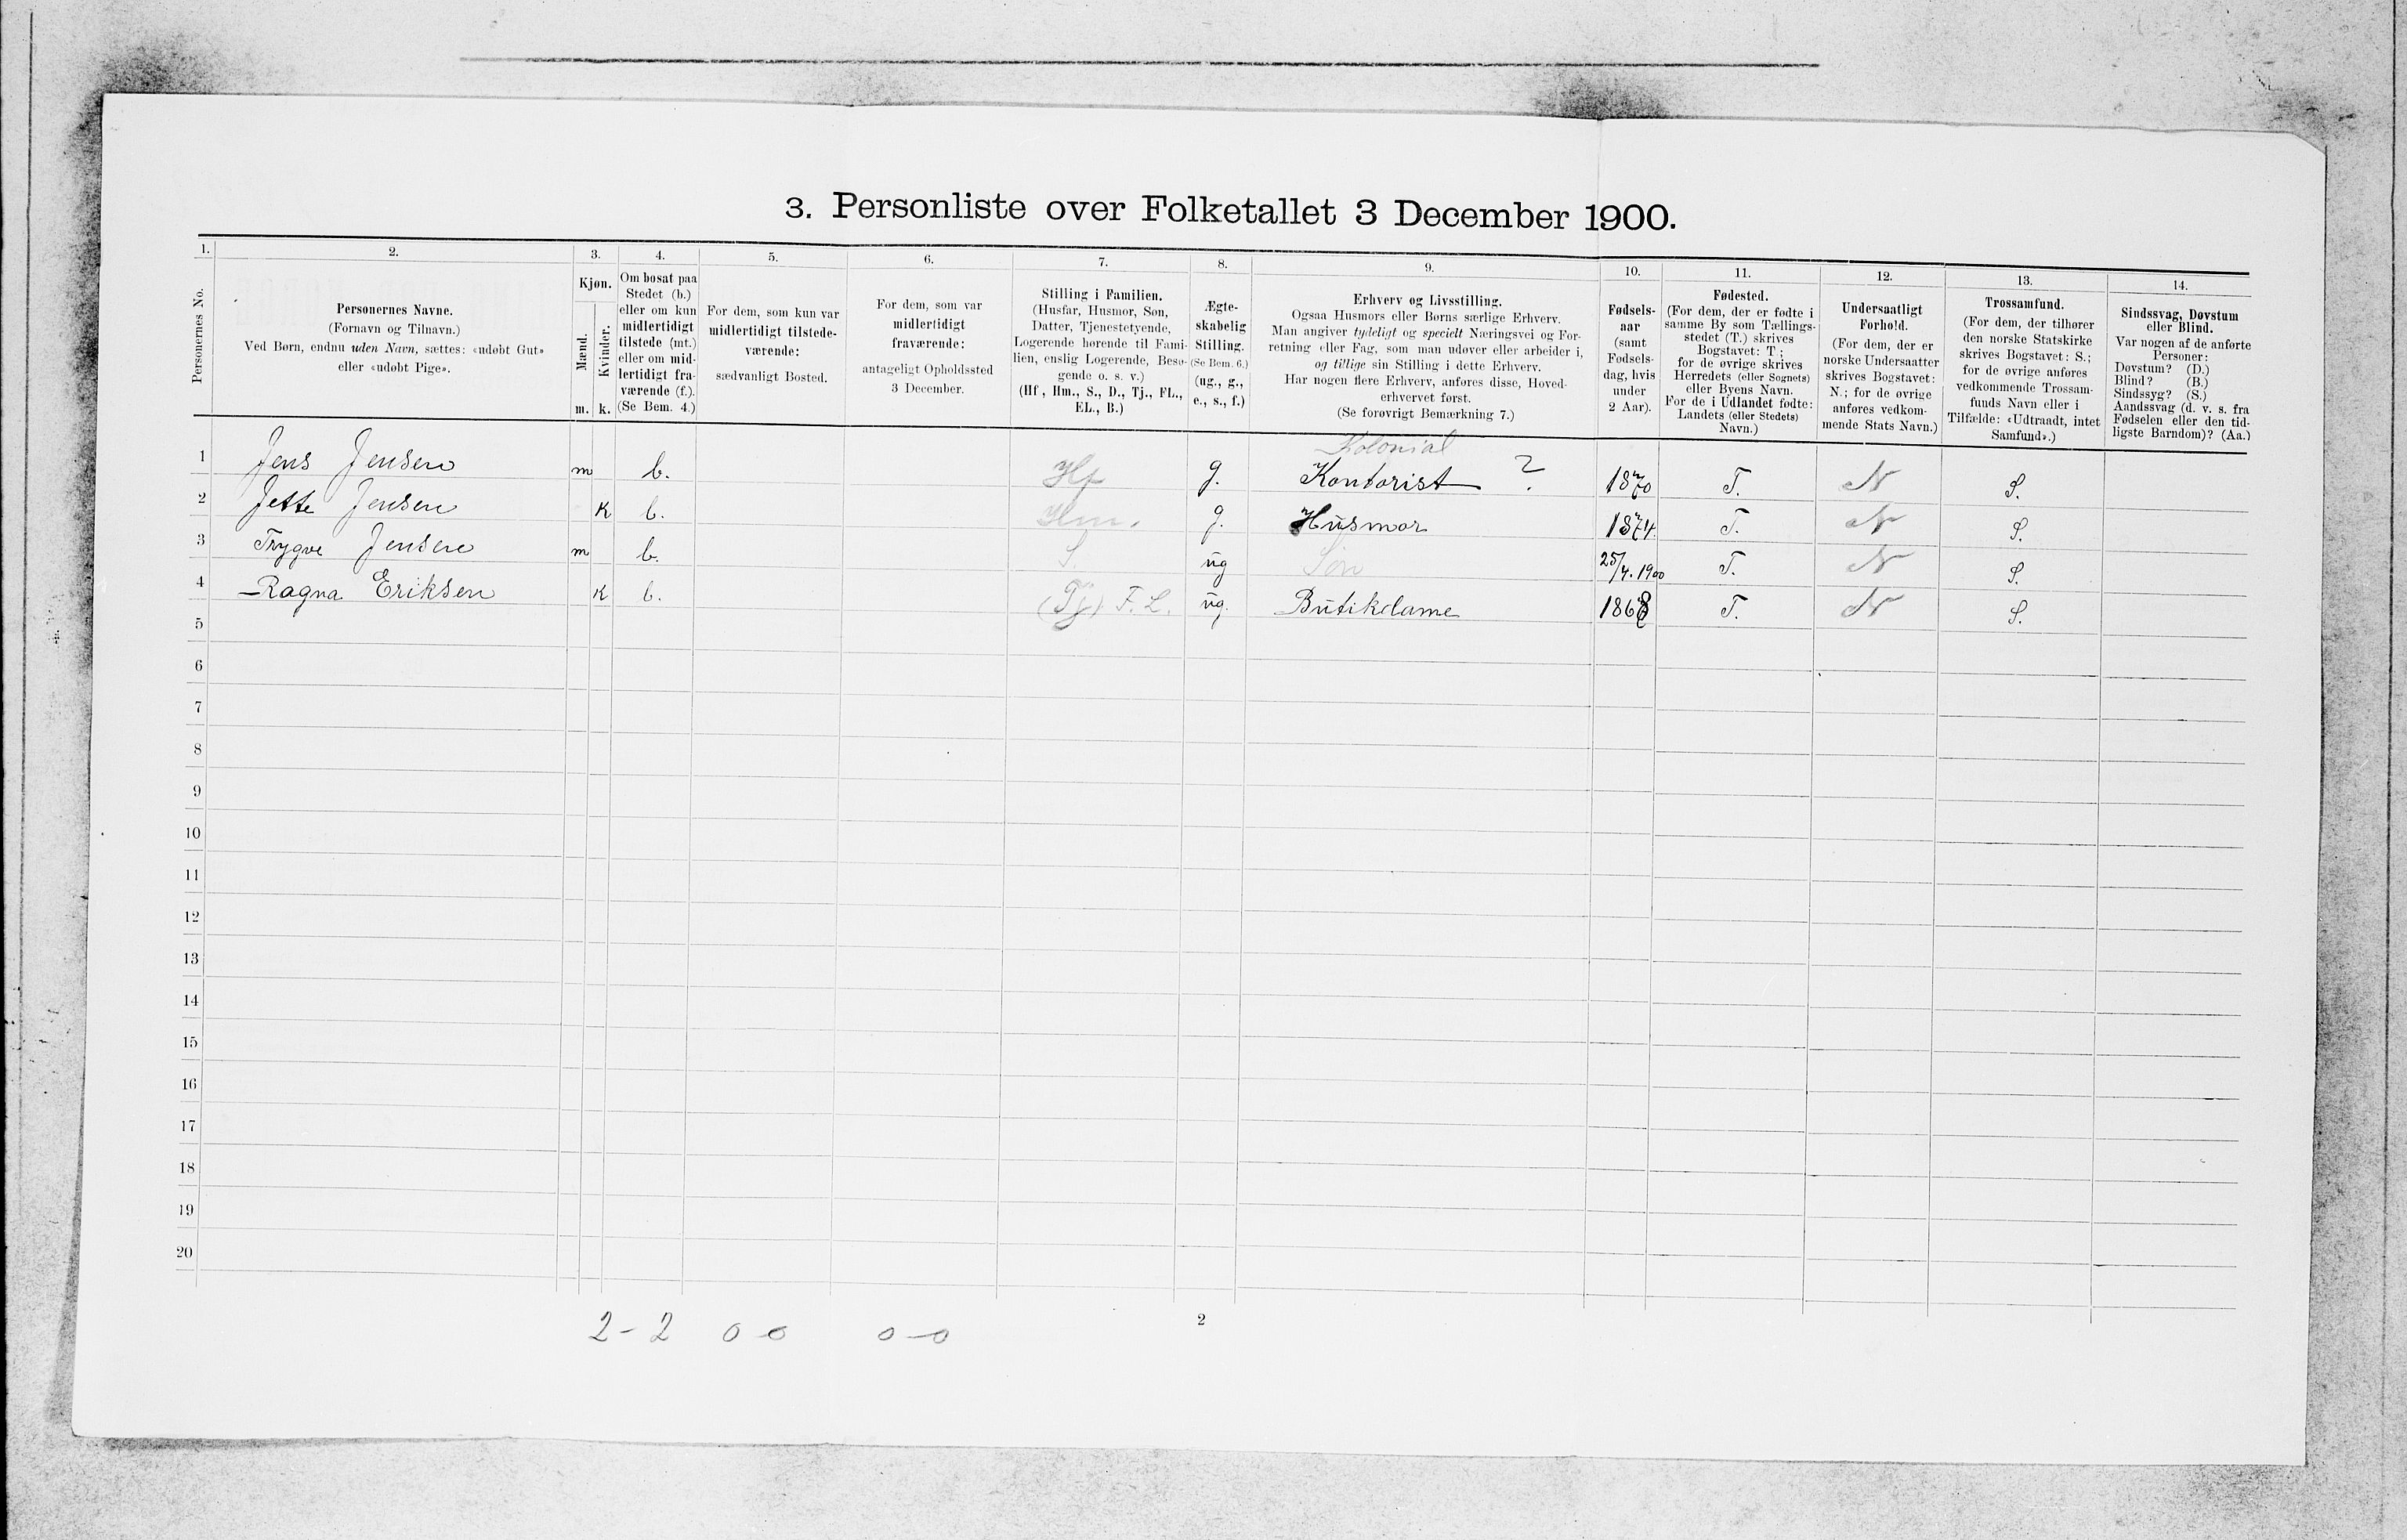 3. Personliste over Folketallet 3 December 1900.
1. 2. 3. 4. 5. 6. 7. 8. 9. 10. 11. 12. 13. 14.
Personernes No.
Personernes Navne.
(Fornavn og Tilnavn.)
Ved Børn, endnu uden Navn, sættes: «udøbt Gut»
eller «udøbt Pige».
Kjøn.
Mænd.
Kvinder.
m. k.
Om bosat paa
Stedet (b.)
eller om kun
midlertidigt
tilstede (mt.)
eller om mid-
lertidigt fra-
værende (f.).
(Se Bem. 4.)
For dem, som kun var
midlertidigt tilstede-
værende:
sædvanligt Bosted.
For dem, som var
midlertidigt
fraværende:
antageligt Opholdssted
3 December.
Stilling i Familien.
(Husfar, Husmor, Søn,
Datter, Tjenestetyende,
Logerende hørende til Fami-
lien, enslig Logerende, Besø-
gende o. s. v.)
(Hf, Hm., S., D., Tj., FL.,
EL., B.)
Ægte-
skabelig
Stilling.
(Se Bem. 6.)
(ug., g.,
e., s., f.)
Erhverv og Livsstilling.
Ogsaa Husmors eller Børns særlige Erhverv.
Man angiver tydeligt og specielt Næringsvei og For-
retning eller Fag, som man udøver eller arbeider i,
og tillige sin Stilling i dette Erhverv.
Har nogen flere Erhverv, anføres disse, Hoved-
erhvervet først.
(Se forøvrigt Bemærkning 7.)
Fødsels-
aar
(samt
Fødsels-
dag, hvis
under
2 Aar).
Fødested.
(For dem, der er fødte i
samme By som Tællings-
stedet (T.) skrives
Bogstavet: T;
for de øvrige skrives
Herredets (eller Sognets)
eller Byens Navn.
For de i Udlandet fødte:
Landets (eller Stedets)
Navn.)
Undersaatligt
Forhold.
(For dem, der er
norske Undersaatter
skrives Bogstavet:
N.; for de øvrige
anføres vedkom-
mende Stats Navn.)
Trossamfund.
(For dem, der tilhører
den norske Statskirke
skrives Bogstavet: S.;
for de øvrige anføres
vedkommende Trossam-
funds Navn eller i
Tilfælde: «Udtraadt, intet
Samfund».)
Sindssvag, Døvstum
eller Blind.
Var nogen af de anførte
Personer:
Døvstum? (D.)
Blind? (B.)
Sindssyg? (S.)
Aandssvag (d. v. s. fra
Fødselen eller den tid-
ligste Barndom)? (Aa.)
Kolonial
1 Jens Jensen m b. Hf g. Kontorist ? 1870 T. N S.
2 Jette Jensen K b. Hm. g. Husmor 1874. T. N S.
3 Trygve Jensen m b. S. ug Søn 25/4.1900 T. N S.
4 Ragna Eriksen K b. (Tj) F.L. ug. Butikdame 1868 T. N S.
5
6
7
8
9
10
11
12
13
14
15
16
17
18
19
20
2-2 0 0 0-0
2